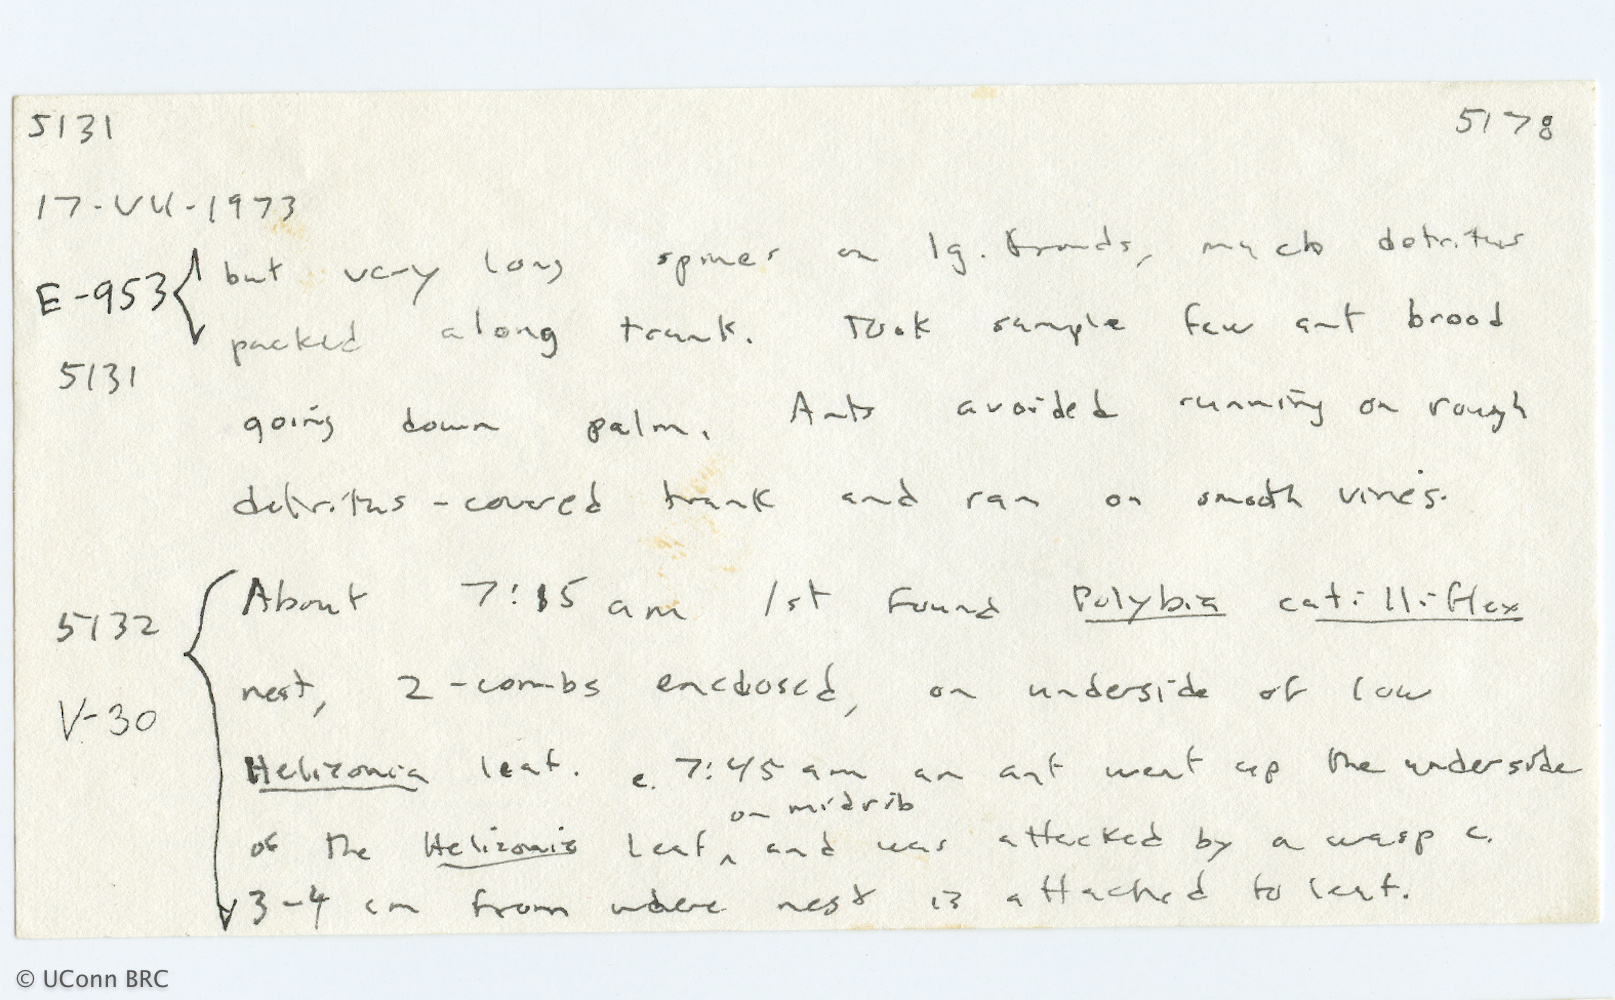 5131 5178
17-VII-1973
E-953 but very long spines on lg. fronds, much detritus
packed along trunk. Took sample few ant brood
5131
going down palm. Ants avoided running on rough
detritus-covered trunk and ran on smooth vines.
5132 About 7:15 am 1st found Polybia catillifex
nest, 2-combs enclosed, on underside of low
V-30
Heliconia leaf. c. 7:45 am an ant went up the underside
on midrib
of the Heliconia leaf ‸ and was attacked by a wasp c.
3-4 cm from where nest is attached to leaf.
© UConn BRC